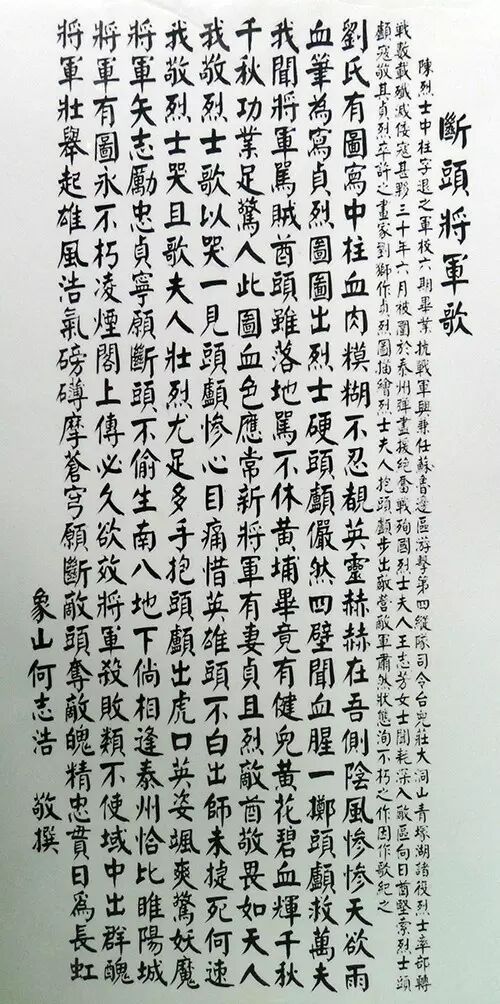 斷頭將軍歌
陳烈士中柱字退之軍校六期畢業抗戰軍興兼任蘇魯邊區游擊第四縱隊司令台兒莊大洞山青塚湖諸役烈士率部轉
戰數載殲滅倭寇甚夥三十年六月被圍於泰州彈盡援絕奮戰殉國烈士夫人王志芳女士聞耗深入敵區向日酋堅索烈士頭
顱寇敬其貞烈卒許之畫家劉獅作貞烈圖描繪烈士夫人抱頭顱步出敵營敵軍肅然狀態洵不朽之作因作歌紀之
劉氏有圖寫中柱血肉糢糊不忍覩英靈赫赫在吾側陰風慘慘天欲雨
血筆為寫貞烈圖圖出烈士硬頭顱儼然四壁聞血腥一擲頭顱救萬夫
我聞將軍罵賊酋頭雖落地罵不休黃埔畢竟有健兒黃花碧血輝千秋
千秋功業足驚人此圖血色應常新將軍有妻貞且烈敵酋敬畏如天人
我敬烈士歌以哭一見頭顱慘心目痛惜英雄頭不白出師未捷死何速
我敬烈士哭且歌夫人壯烈尤足多手抱頭顱出虎口英姿颯爽驚妖魔
將軍矢志勵忠貞寧願斷頭不偷生南八地下倘相逢泰州恰比睢陽城
將軍有圖永不朽凌煙閣上傳必久欲效將軍殺敗類不使域中出群醜
將軍壯舉起雄風浩氣磅礴摩蒼穹願斷敵頭奪敵魄精忠貫日為長虹
象山何志浩　敬撰